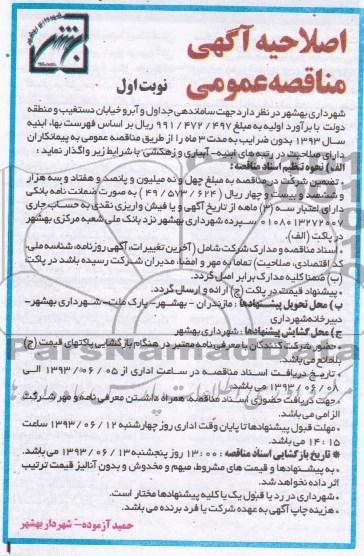 اصلاحیه آگهی
مناقصه عمومی
نوبت اول
شهرداری بهشهر در نظر دارد جهت ساماندهی جداول و آبرو خیابان دستغیب و منطقه
دولت با برآورد اولیه به مبلغ ۴۹۷ / ۴۷۲ / ۹۹۱ ریال بر اساس فهرست بها، ابنیه
سال ۱۳۹۳ بدون ضرایب به مدت ۳ ماه را از طریق مناقصه عمومی به پیمانکاران
دارای صلاحیت در رتبه های ابنیه - آبیاری و زهکشی با شرایط زیر واگذار نماید :
الف) نحوه تنظیم اسناد مناقصه :
- تضمین شرکت در مناقصه به مبلغ چهل و نه میلیون و پانصد و هفتاد و سه هزار
و ششصد و بیست و چهار ریال (۶۲۴ / ۵۷۳ / ۴۹) به صورت ضمانت نامه بانکی
دارای اعتبار سه (۳) ماهه از تاریخ آگهی و یا فیش واریزی نقدی به حساب جاری
۰۱۰۸۰۱۳۲۷۲۰۰۷ سپرده شهرداری بهشهر نزد بانک ملی شعبه مرکزی بهشهر
در پاکت (الف).
- اسناد مناقصه و مدارک شرکت شامل (آخرین تغییرات، آگهی روزنامه، شناسه ملی،
کد اقتصادی، صلاحیت) تماما به مهر و امضاء مدیران شرکت رسیده باشد در پاکت
(ب) ضمنا کلیه مدارک برابر اصل گردد.
- پیشنهاد قیمت در پاکت (ج) ارائه و ارسال گردد.
ب) محل تحویل پیشنهادها : مازندران - بهشهر- پارک ملت- شهرداری بهشهر-
دبیرخانه شهرداری
ج) محل گشایش پیشنهادها : شهرداری بهشهر
- حضور شرکت کنندگان با معرفی نامه معتبر در هنگام بازگشایی پاکتهای قیمت (ج)
بلامانع می باشد.
- تاریخ دریافت اسناد مناقصه در ساعت اداری از ۰۵ /۰۶ / ۱۳۹۳ الی
۰۸ /۰۶ / ۱۳۹۳ می باشد.
- جهت دریافت حضوری اسناد مناقصه، همراه داشتن معرفی نامه و مهر شرکت
الزامی می باشد.
- مهلت قبول پیشنهادها تا پایان وقت اداری روز چهارشنبه ۱۲ /۰۶ / ۱۳۹۳ ساعت
۱۵ : ۱۴ می باشد.
* تاریخ بازگشایی اسناد مناقصه : ۰۰ : ۱۳ روز پنجشنبه ۱۳ /۰۶ / ۱۳۹۳ می باشد.
- به پیشنهادها و قیمت های مشروط، مبهم و مخدوش و بدون آنالیز قیمت ترتیب
اثر داده نخواهد شد.
- شهرداری در رد یا قبول یک یا کلیه پیشنهادها مختار است.
- هزینه چاپ آگهی به عهده شرکت یا فرد برنده می باشد.
حمید آزموده – شهردار بهشهر